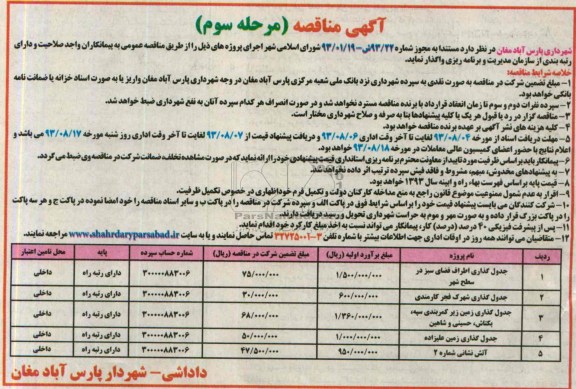 آگهی مناقصه (مرحله سوم)
شهرداری پارس آباد مغان در نظر دارد مستندا به مجوز شماره ۹۳/۲۲/ش-۹۳/۰۱/۱۹ شورای اسلامی شهر اجرای پروژه های ذیل را از طریق مناقصه عمومی به پیمانکاران واجد صلاحیت و دارای
رتبه بندی از سازمان مدیریت و برنامه ریزی واگذار نماید.
خلاصه شرایط مناقصه:
۱- مبلغ تضمین شرکت در مناقصه به صورت نقدی به سپرده شهرداری نزد بانک ملی شعبه مرکزی پارس آباد مغان در وجه شهرداری پارس آباد مغان واریز یا به صورت اسناد خزانه یا ضمانت نامه
بانکی خواهد بود.
۲- سپرده نفرات دوم و سوم تا زمان انعقاد قرارداد با برنده مناقصه مسترد نخواهد شد و در صورت انصراف هر کدام سپرده آنان به نفع شهرداری ضبط خواهد شد.
۳- مناقصه گزار در رد یا قبول هر یک یا کلیه پیشنهادها بنا به صرفه و صلاح شهرداری مختار است.
۴- کلیه هزینه های نشر آگهی بر عهده برنده مناقصه خواهد بود.
۵- مهلت دریافت اسناد از مورخه ۹۳/۰۸/۰۴ لغایت تا آخر وقت اداری ۹۳/۰۸/۰۶ و دریافت پیشنهاد قیمت از ۹۳/۰۸/۰۷ لغایت تا آخر وقت اداری روز شنبه مورخه ۹۳/۰۸/۱۷ می باشد و
اعلام نتایج با حضور اعضای کمیسیون عالی معاملات در مورخه ۹۳/۰۸/۱۸ خواهد بود.
۶- پیمانکار باید بر اساس ظرفیت مورد تایید از معاونت محترم برنامه ریزی استانداری قیمت پیشنهادی خود را ارائه نماید که در صورت مشاهده تخلف، ضمانت شرکت در مناقصه وی ضبط می گردد.
۷- به پیشنهادهای مخدوش، مبهم، مشروط و فاقد فیش سپرده ترتیب اثر داده نخواهد شد.
۸- قیمت پایه بر اساس فهرست بهاء راه و ابنیه سال ۱۳۹۳ خواهد بود.
۹- اقرار به عدم شمول ممنوعیت موضوع قانون راجع به منع مداخله کارکنان دولت و تکمیل فرم خوداظهاری در خصوص تکمیل ظرفیت.
۱۰- شرکت کنندگان می بایست پیشنهاد قیمت خود را بر اساس شرایط فوق در پاکت الف و سپرده شرکت در مناقصه را در پاکت ب و سایر اسناد مناقصه را خود امضا نموده در پاکت ج و هر سه پاکت
را در پاکت بزرگ قرار داده و به صورت مهر و موم به حراست شهرداری تحویل و رسید دریافت دارند.
۱۱- پس از پیشرفت فیزیکی ۴۰ درصد (درصد) کار، پیمانکار می تواند نسبت به اخذ مبلغ کارکرد خود اقدام نماید.
۱۲- متقاضیان می توانند همه روز در اوقات اداری جهت اطلاعات بیشتر با شماره تلفن ۳-۳۲۷۲۵۰۰۱ تماس حاصل نمایند و یا به سایت www.shahrdaryparsabad.ir مراجعه نمایند.
ردیف نام پروژه مبلغ برآورد اولیه (ریال) مبلغ تضمین شرکت در مناقصه (ریال) شماره حساب سپرده پایه محل تامین اعتبار
۱ جدول گذاری اطراف فضای سبز در سطح شهر ۱/۵۰۰/۰۰۰/۰۰۰ ۷۵/۰۰۰/۰۰۰ ۳۰۰۰۰۰۸۸۳۰۰۶ دارای رتبه راه داخلی
۲ جدول گذاری شهرک فجر کارمندی ۶۰۰/۰۰۰/۰۰۰ ۳۰/۰۰۰/۰۰۰ ۳۰۰۰۰۰۸۸۳۰۰۶ دارای رتبه راه داخلی
۳ جدول گذاری زمین زیر کمربندی سپه، بکتاش، حسینی و شاهین ۱/۳۶۰/۰۰۰/۰۰۰ ۶۸/۰۰۰/۰۰۰ ۳۰۰۰۰۰۸۸۳۰۰۶ دارای رتبه راه داخلی
۴ جدول گذاری زمین علیزاده ۱/۰۰۰/۰۰۰/۰۰۰ ۵۰/۰۰۰/۰۰۰ ۳۰۰۰۰۰۸۸۳۰۰۶ دارای رتبه راه داخلی
۵ آتش نشانی شماره ۲ ۹۵۰/۰۰۰/۰۰۰ ۴۷/۵۰۰/۰۰۰ ۳۰۰۰۰۰۸۸۳۰۰۶ دارای رتبه راه داخلی
داداشی- شهردار پارس آباد مغان